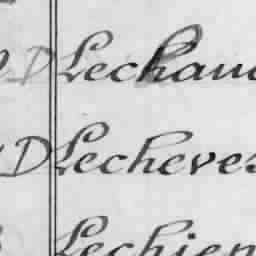 D Lechau
D Lecheves
Lechien